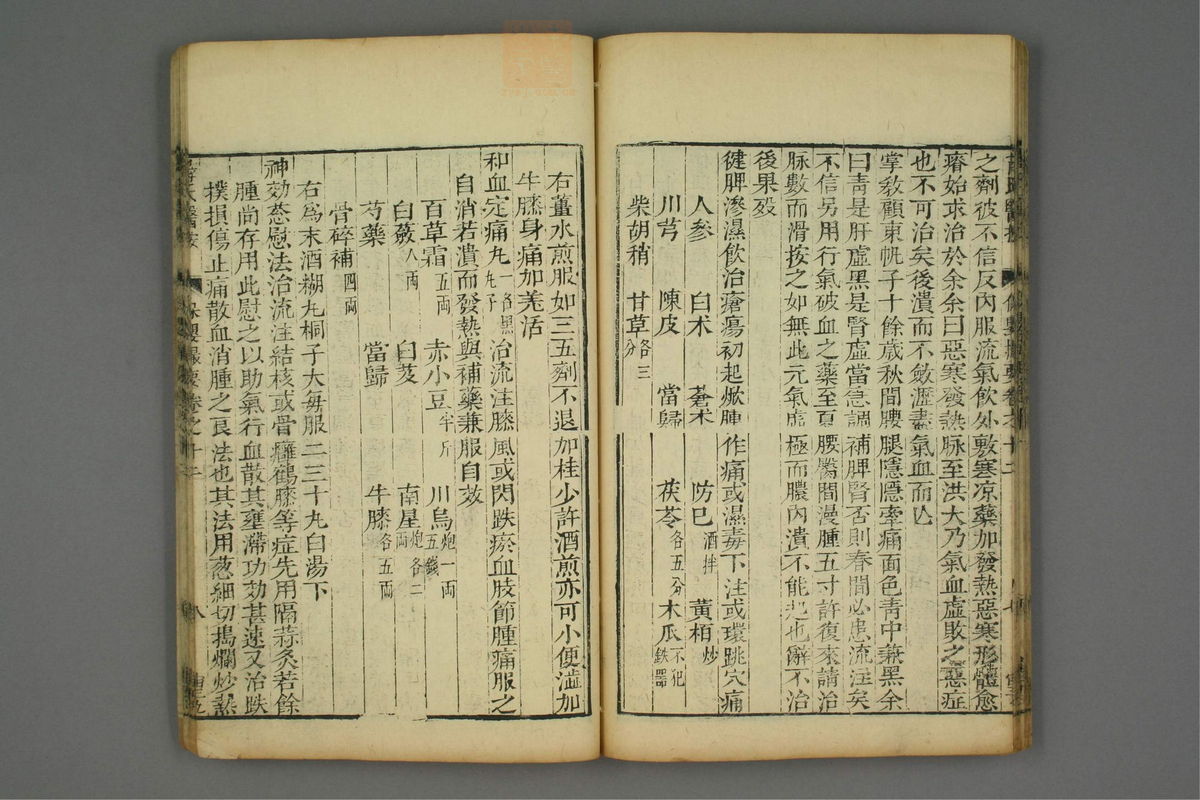 之劑彼不信反內服流氣飲外敷寒凉藥加發熱惡寒形體愈
瘠始求治於余余曰惡寒發熱脉至洪大乃氣血虛敗之惡症
也不可治矣後潰而不斂瀝盡氣血而亾
掌教顧東帆子十餘歲秋間腰腿隱隱牽痛面色靑中兼黑余
曰靑是肝虛黑是腎虛當急調補脾腎否則春間必患流注矣
不信另用行氣破血之藥至夏腰胯間漫腫五寸許復來請治
脉數而滑按之如無此元氣虛極而膿內潰不能起也辭不治
後果歿
健脾滲濕飲治瘡瘍初起焮腫作痛或濕毒下注或環跳穴痛
人參 白术 蒼术 防巳酒拌 黃栢炒
川芎 陳皮 當歸 茯苓各五分 木瓜不犯鉄器
柴胡稍 甘草各三分
右薑水煎服如三五劑不退加桂少許酒煎亦可小便澁加
牛膝身痛加羌活
和血定痛丸一名黑丸子 治流注膝風或閃跌瘀血肢節腫痛服之
自消若潰而發熱與補藥兼服自效
百草霜五兩 赤小豆半斤 川烏炮一兩五錢
白蘞八兩 白芨 南星炮各二兩
芍藥 當歸 牛膝各五兩
骨碎補四兩
右爲末酒糊丸桐子大每服二三十丸白湯下
神効葱慰法治流注結核或骨癰鶴膝等症先用隔蒜灸若餘
腫尚存用此慰之以助氣行血散其壅滯功効甚速又治跌
撲損傷止痛散血消腫之良法也其法用葱細切搗爛炒熱